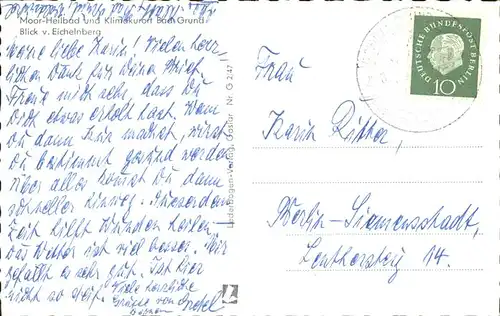 Moor-Heilbad und Klimakurort Bad Grund
Blick v. Eichelnberg
meine liebe Karin! Vielen herz-
lichen Dank für Deine
Freue mich sehr, dass Du
Dich etwas erholt hast. Wenn
Du dann Kur machst, wirst
Du bestimmt gesund werden
über alles kommst Du dann
schneller hinweg. Ausserdem
Zeit hilft Wunden heilen
Das Wetter ist viel besser. Mir
gefällt es sehr gut. Ist hier
nicht so
Viele herzliche
Grüsse von
Lederbogen-Verlag, Goslar Nr. G 2/47
DEUTSCHE BUNDESPOST BERLIN
10
Frau
Karin Ritter,
Berlin-Siemensstadt,
14.